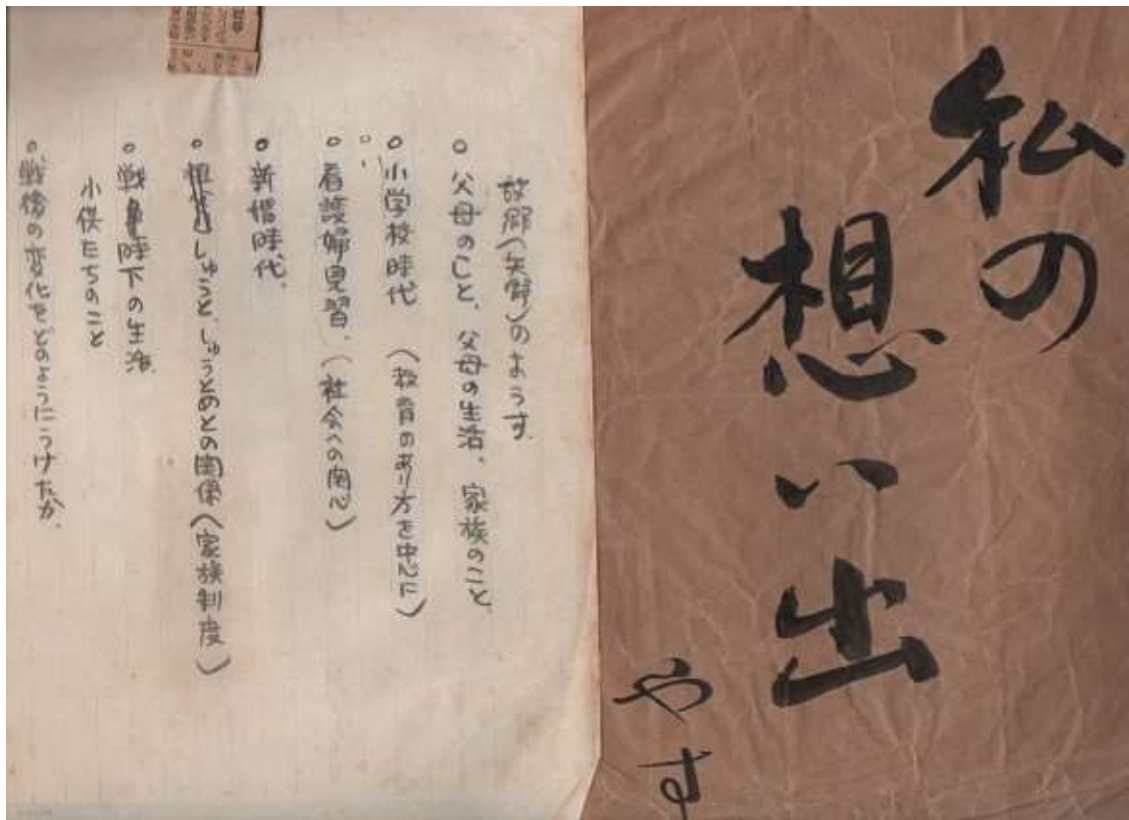 私の
想い出
やす
故郷(矢野)のようす.
○父母のこと、父母の生活、家族のこと.
○小学校時代 (教育のあり方を中心に)
○看護婦見習、(社会への関心)
○新婚時代.
○しゅうと、しゅうとめとの関係(家族制度)
○戦時下の生活.
小供たちのこと
○戦後の変化をどのようにうけたか.